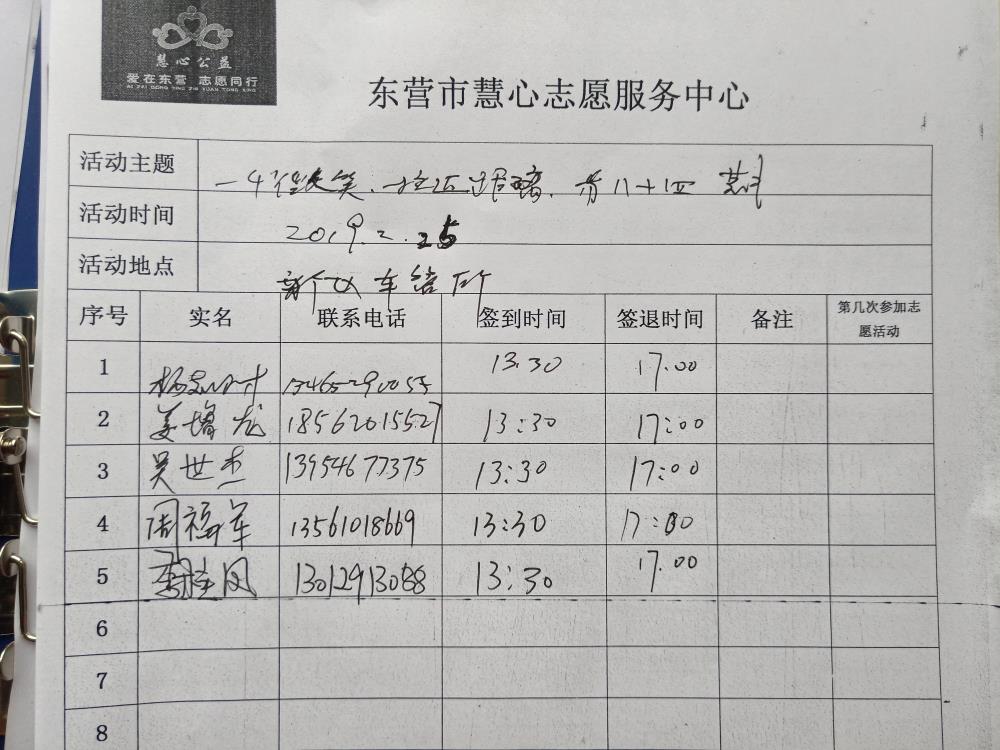 慧心公益
爱在东营 志愿同行
AI ZAI DONG YING ZHI YUAN TONG XING
东营市慧心志愿服务中心
活动主题 一个微笑、拉近距离、第八十四
活动时间 2019.2.25
活动地点 车管所
序号 实名 联系电话 签到时间 签退时间 备注 第几次参加志愿活动
1 13:30 17:00
2 姜增龙 18562015527 13:30 17:00
3 吴世杰 13954677375 13:30 17:00
4 周福军 13561018669 13:30 17:00
5 李桂凤 13012913088 13:30 17.00
6
7
8